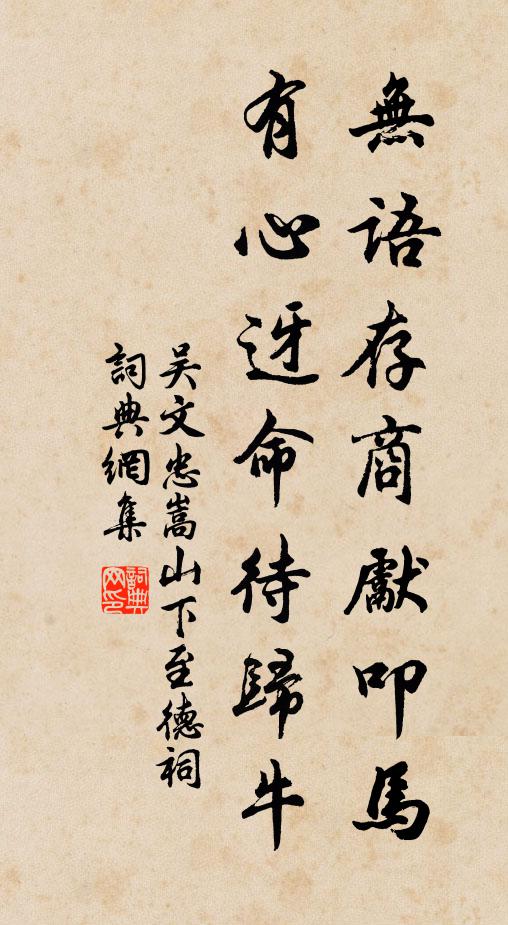 無語存商獻叩馬
有心迓命待歸牛
吴文忠嵩山下至德祠
詞典網集
詞典
网印